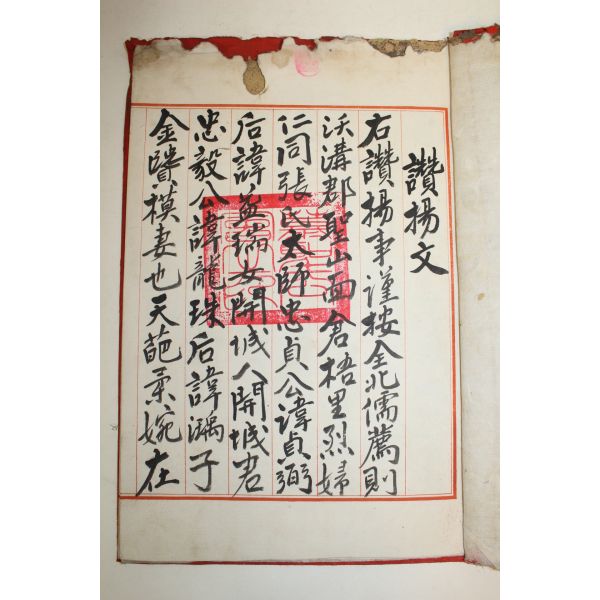 讚揚文
右讚揚事謹按全北儒薦則
沃溝郡聖山面倉梧里烈婦
仁同張氏太師忠貞公諱貞弼
后諱益瑞女開城人開城君
忠毅公諱龍珠后諱漓子
金贇模妻也天葩柔婉在